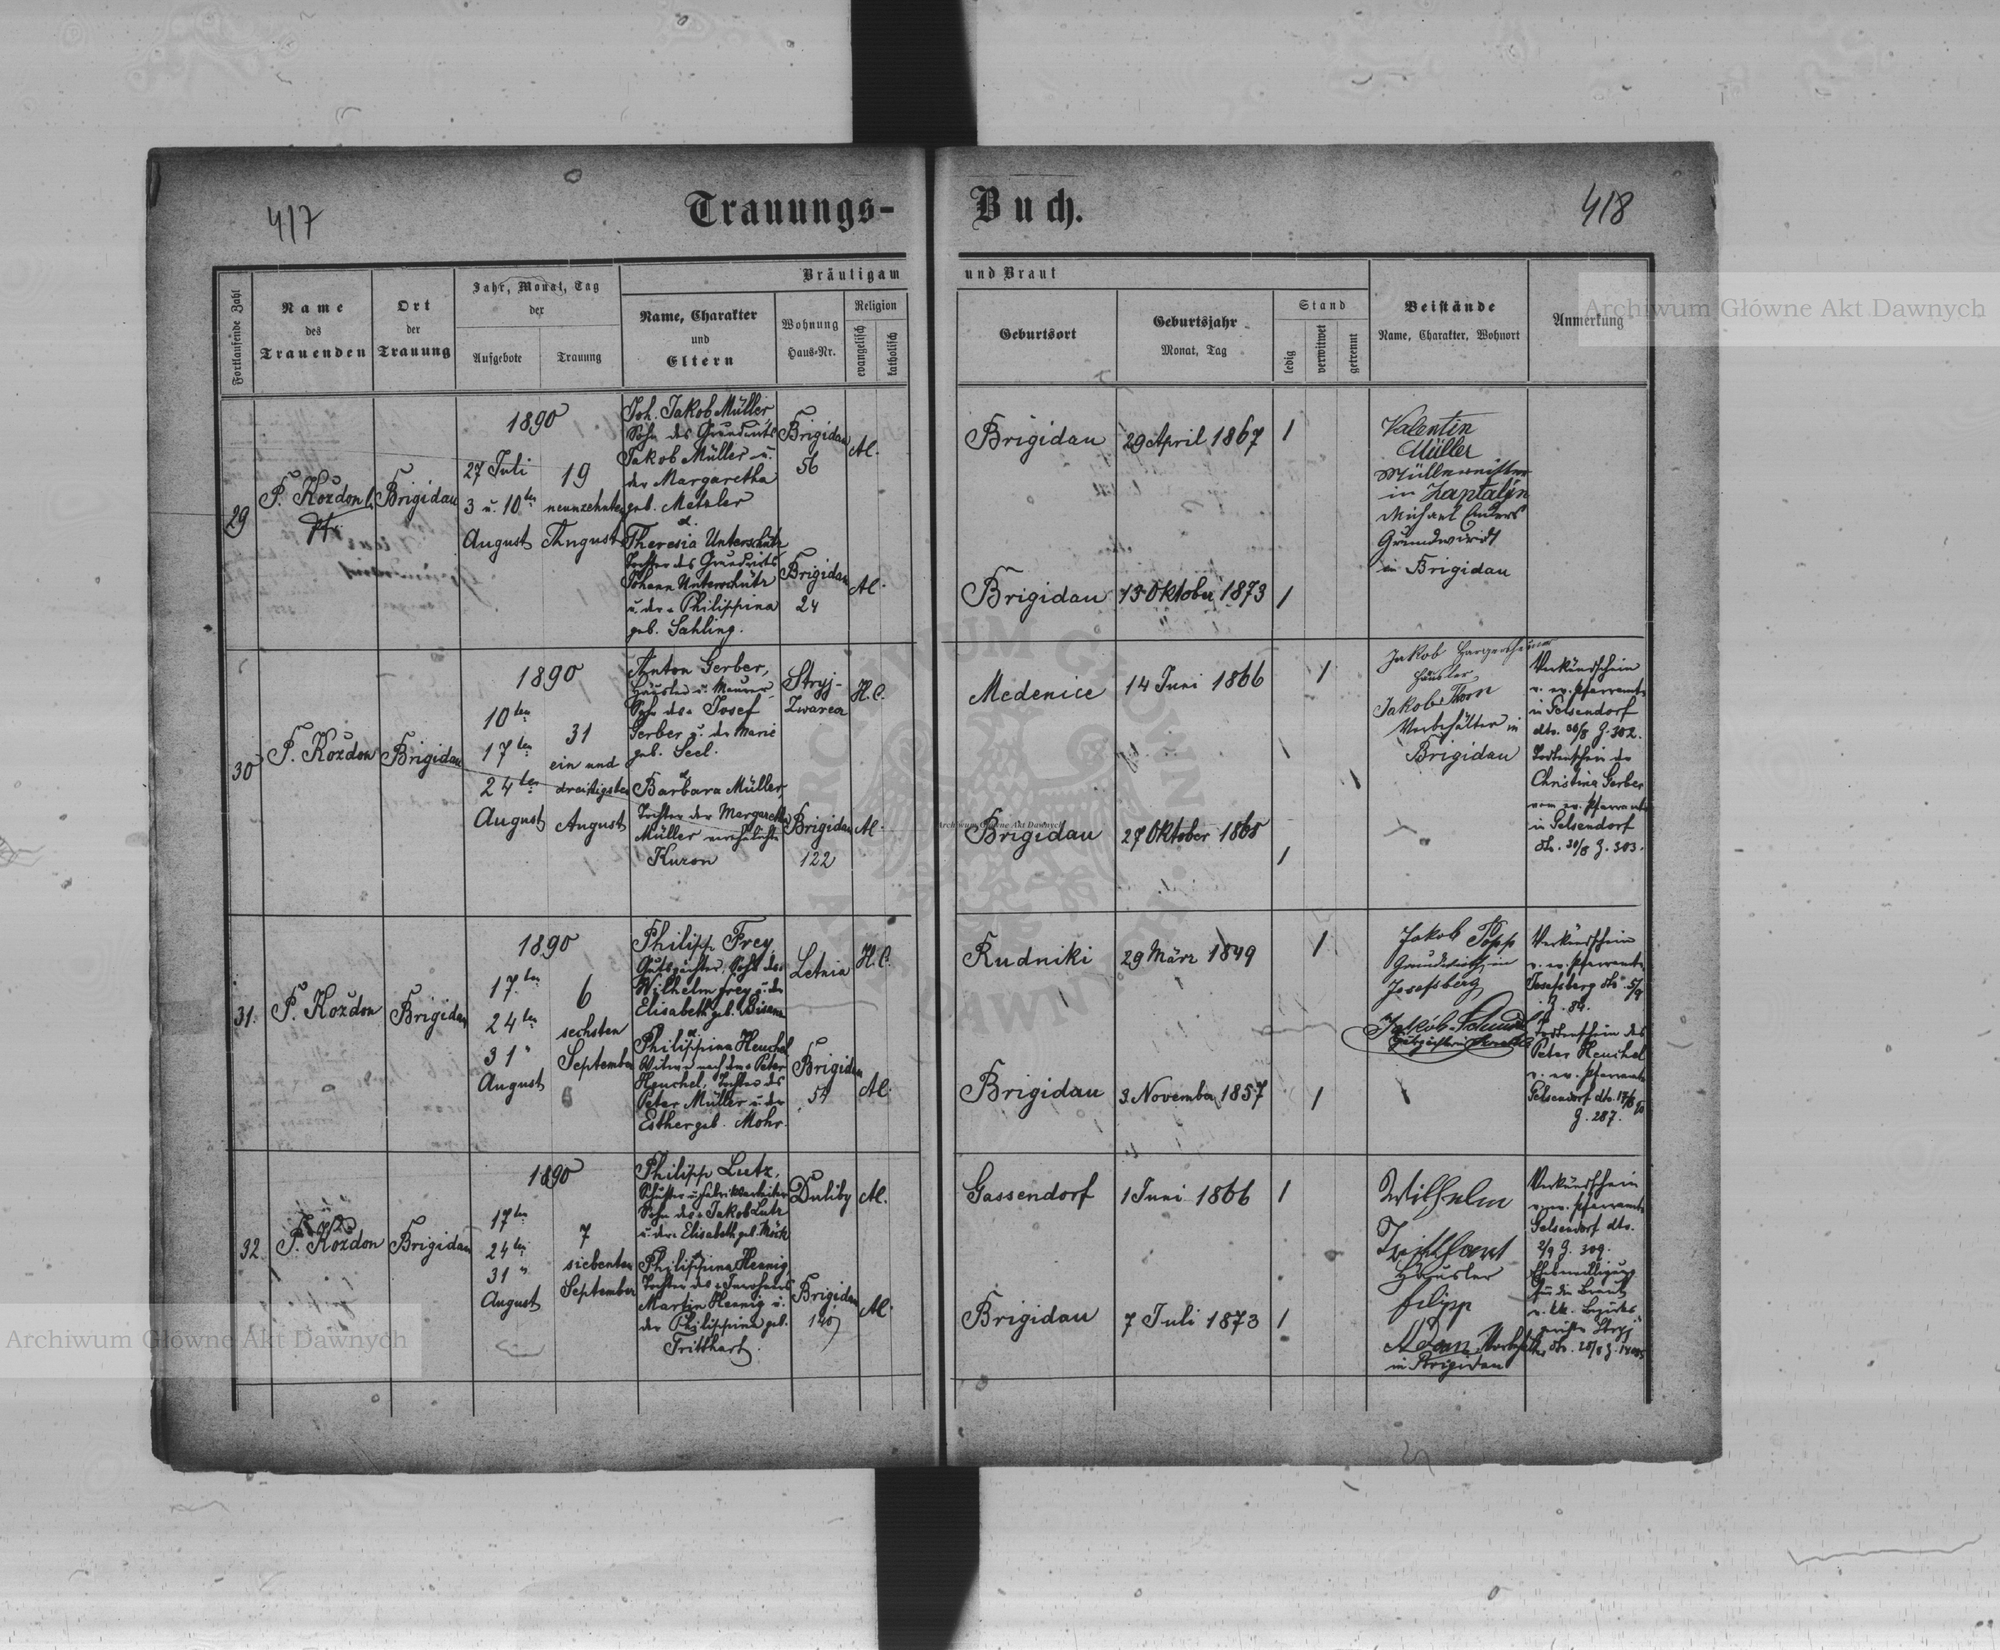 417
Trauungs-
Buch.
418
Fortlaufende Zahl
Name
des
Trauenden
Ort
der
Trauung
Jahr, Monat, Tag
der
Aufgebote
Trauung
Bräutigam
und Braut
Name, Charakter
und
Eltern
Wohnung
Haus-Nr.
Religion
evangelisch
katholisch
Geburtsort
Geburtsjahr
Monat, Tag
Stand
ledig
verwitwet
getrennt
Beistände
Name, Charakter, Wohnort
Anmerkung
29
P. Kozdon
Pfr.
Brigidau
1890
27 Juli
3 u. 10ten
August
19
neunzehnten
August
Joh. Jakob Müller
Sohn des Grundwirts
Jakob Müller u.
der Margaretha
geb. Metzler
Theresia Unterschütz
Tochter des Grundwirts
Johann Unterschütz
u. der Philippina
geb. Sahling.
Brigidau
56
Brigidau
24
Al.
Al.
Brigidau
29 April 1867
1
Brigidau
15 Oktober 1873
1
Valentin
Müller
Müllermeister
in
Michael Enders
Grundwirdt
in Brigidau
30
P. Kozdon
Brigidau
1890
10ten
17ten
24ten
August
31
ein und
dreißigsten
August
Anton Gerber,
Häusler u. Maurer
Sohn des Josef
Gerber u. der Marie
geb. Seel.
Barbara Müller
Tochter der Margaretha
Müller verehelichte
Kuron
Stryj-
Brigidau
122
H.C.
Al.
Medenice
14 Juni 1866
1
Brigidau
27 Oktober 1865
1
Jakob
Häusler
Jakob Thorn
in
Brigidau
Verkündschein
v. ev. Pfarramte
in Gelsendorf
dto. 30/8 Z. 302.
Todtenschein der
Christina Gerber
vom ev. Pfarramte
in Gelsendorf
dto. 30/8 Z. 303.
31.
P. Kozdon
Brigidau
1890
17ten
24ten
31 "
August
6
sechsten
September
Philipp Frey
Gutspächter, Sohn des
Wilhelm Frey u. der
Elisabeth geb. Bisanz
Philippina Henchel
Witwe nach dem Peter
Henchel, Tochter des
Peter Müller u. der
Esther geb. Mohr.
Letnia
Brigidau
54
H.C.
Al.
Rudniki
29 März 1849
1
Brigidau
3 November 1857
1
Jakob Popp
Grundwirth in
Josefsberg
Jakob Schmidt
Gutspächter in
Verkündschein
v. ev. Pfarramte
Josefsberg dto. 5/9
Z. 86.
Todtenschein des
Peter Henchel
v. ev. Pfarramte
Gelsendorf dto. 17/8 90
Z. 287.
32.
P. Kozdon
Brigidau
1890
17ten
24ten
31 "
August
7
siebenten
September
Philipp Lutz,
Schuster u. Fabriksarbeiter
Sohn des Jakob Lutz
u. der Elisabeth geb. Möck
Philippina Hennig,
Tochter des
Martin Hennig u.
der Philippina geb.
Tritthart.
Duliby
Brigidau
Al.
Al.
Gassendorf
1 Juni 1866
1
Brigidau
7 Juli 1873
1
Wilhelm
Tritthart
Häusler
filipp
Adam
in Brigidau
Verkündschein
v. ev. Pfarramte
Gelsendorf dto.
2/9 Z. 309.
Ehebewilligung
für die Braut
v. kk. Bezirks
gericht Stryj
Archiwum Główne Akt Dawnych
Archiwum Główne Akt Dawnych
Archiwum Główne Akt Dawnych
ARCHIWUM GŁÓWNE AKT DAWNYCH